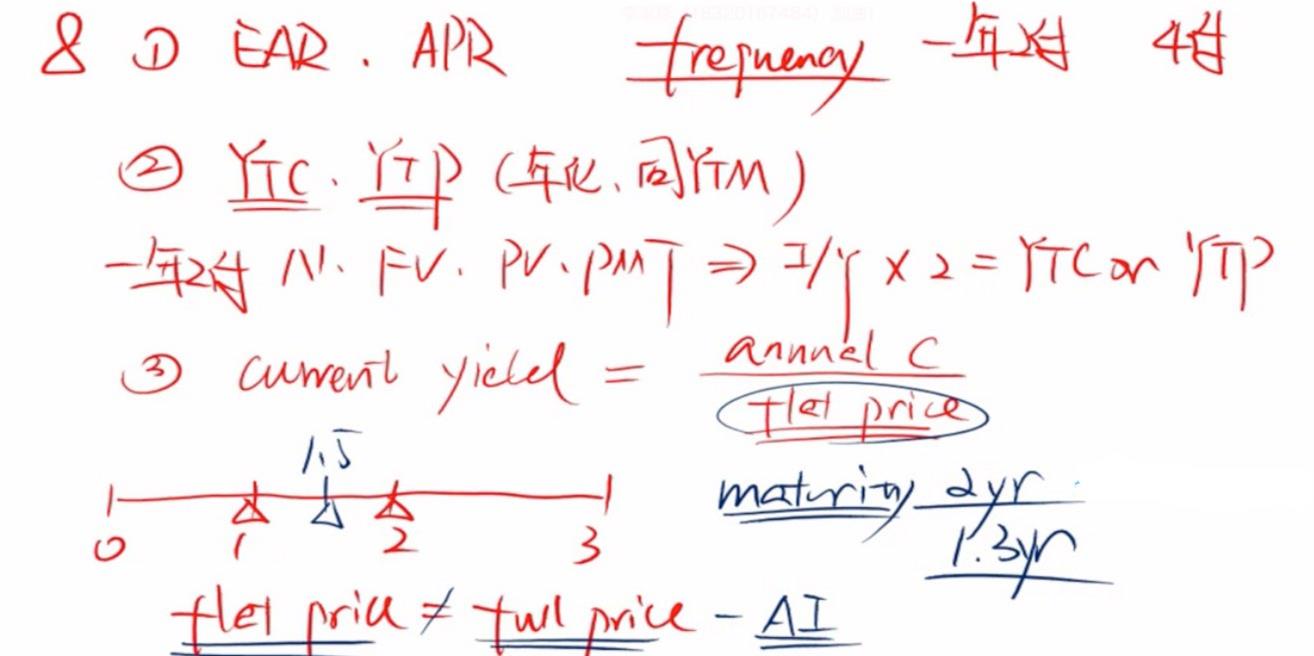 8 ① EAR . APR frequency 一年2付 4付
② YTC . YTP (年化、同YTM)
一年2付 N . FV . PV . PMT ⇒ I/Y × 2 = YTC or YTP
③ current yield = annual C
flat price
1.5
0 1 2 3
maturity 2yr
1.3yr
flat price ≠ full price - AI